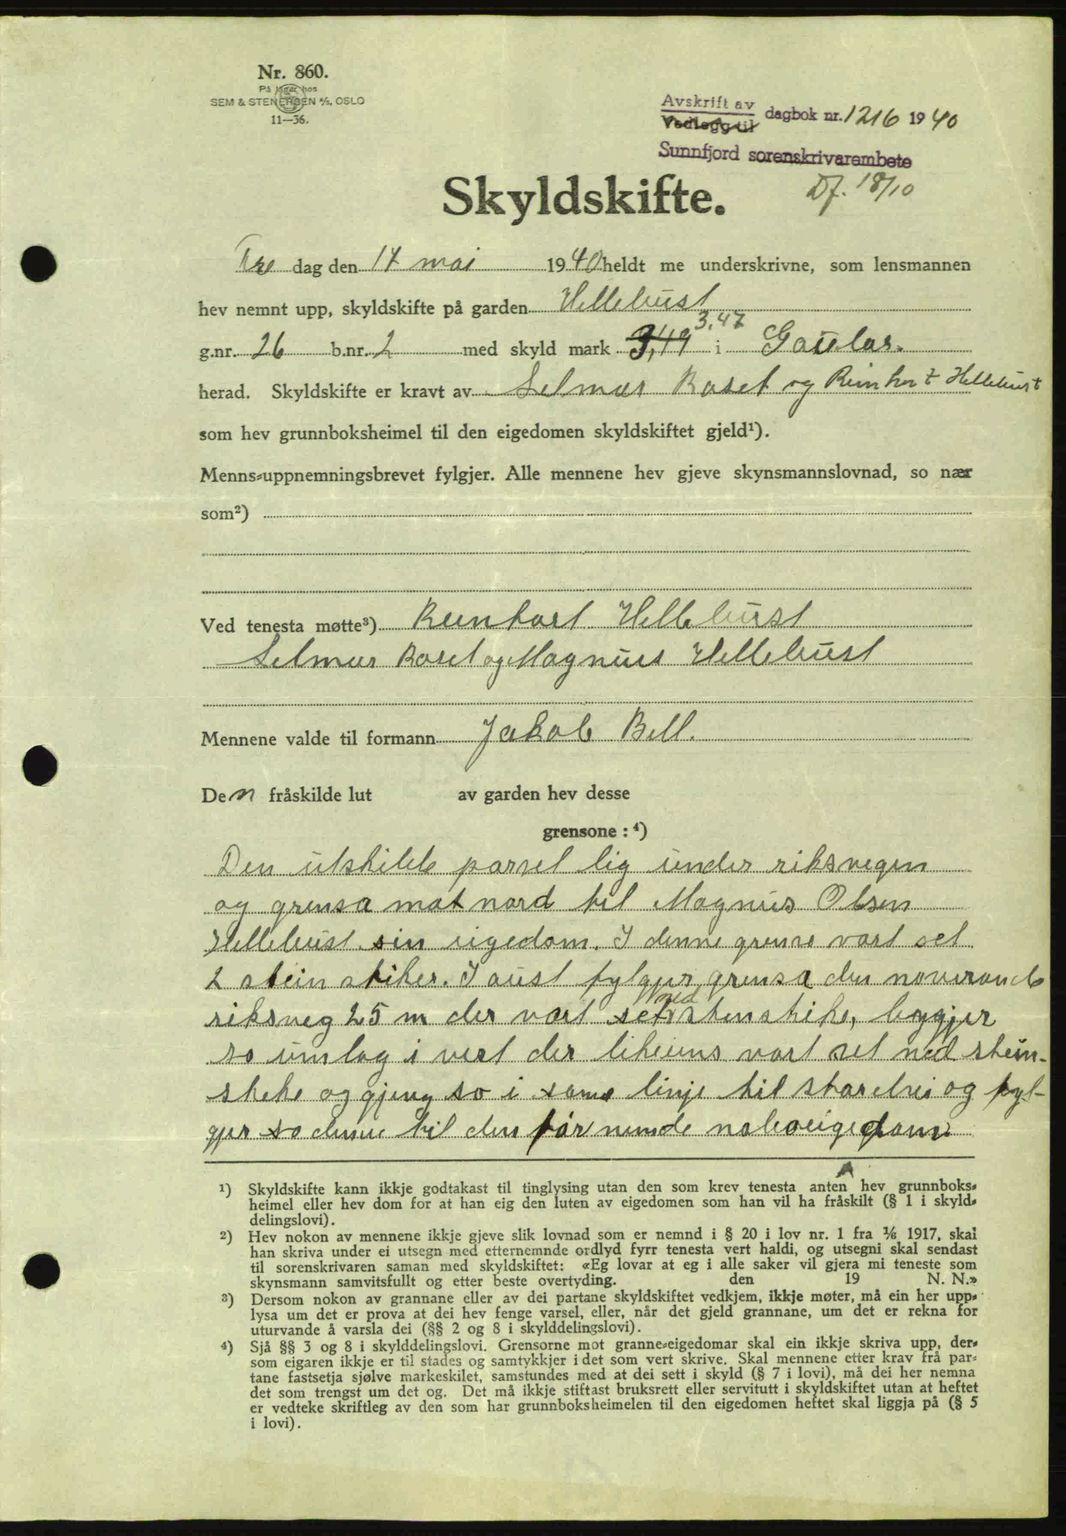 Nr. 860.
På lager hos
SEM & STENERSEN A/S, OSLO
11—36.
Avskrift av
Vedlegg til dagbok nr. 1216 1940
Sunnfjord sorenskrivarembete
Df. 18/10
Skyldskifte.
Tre dag den 14 mai 1940 heldt me underskrivne, som lensmannen
hev nemnt upp, skyldskifte på garden Hellebust
3,47
g.nr. 26 b.nr. 2 med skyld mark 3,49 i Gaular.
herad. Skyldskifte er kravt av Selmer Roset og Reinhart Hellebust
som hev grunnboksheimel til den eigedomen skyldskiftet gjeld¹).
Menns-uppnemningsbrevet fylgjer. Alle mennene hev gjeve skynsmannslovnad, so nær
som²)
Ved tenesta møtte³) Reinhart Hellebust
Selmer Roset og Magnus Hellebust
Mennene valde til formann Jakob Bell.
Den fråskilde lut av garden hev desse
grensone : ⁴)
Den utskilde parsel lig under riksvegen
og grensa mot nord til Magnus Olsen
Hellebust sin eigedom. I denne grense vart set
2 stein stiker. I aust fylgjer grensa den noverande
ned
riksveg 25 m der vart set stenstike, beygjer
so umlag i vest der likeeins vart set ned stein-
steke og gjeng so i same linje til storelvi og fyl-
gjer so denne til den før nemde naboeigedom
¹) Skyldskifte kann ikkje godtakast til tinglysing utan den som krev tenesta anten hev grunnboks-
heimel eller hev dom for at han eig den luten av eigedomen som han vil ha fråskilt (§ 1 i skyld-
delingslovi).
²) Hev nokon av mennene ikkje gjeve slik lovnad som er nemnd i § 20 i lov nr. 1 fra ⅙ 1917, skal
han skriva under ei utsegn med etternemnde ordlyd fyrr tenesta vert haldi, og utsegni skal sendast
til sorenskrivaren saman med skyldskiftet: «Eg lovar at eg i alle saker vil gjera mi teneste som
skynsmann samvitsfullt og etter beste overtyding. den 19 N. N.»
³) Dersom nokon av grannane eller av dei partane skyldskiftet vedkjem, ikkje møter, må ein her upp-
lysa um det er prova at dei hev fenge varsel, eller, når det gjeld grannane, um det er rekna for
uturvande å varsla dei (§§ 2 og 8 i skylddelingslovi).
⁴) Sjå §§ 3 og 8 i skylddelingslovi. Grensorne mot granne-eigedomar skal ein ikkje skriva upp, der-
som eigaren ikkje er til stades og samtykkjer i det som vert skrive. Skal mennene etter krav frå par-
tane fastsetja sjølve markeskilet, samstundes med at dei sett i skyld (§ 7 i lovi), må dei her nemna
det som trengst um det og. Det må ikkje stiftast bruksrett eller servitutt i skyldskiftet utan at heftet
er vedteke skriftleg av den som har grunnboksheimelen til den eigedomen heftet skal liggja på (§ 5
i lovi).